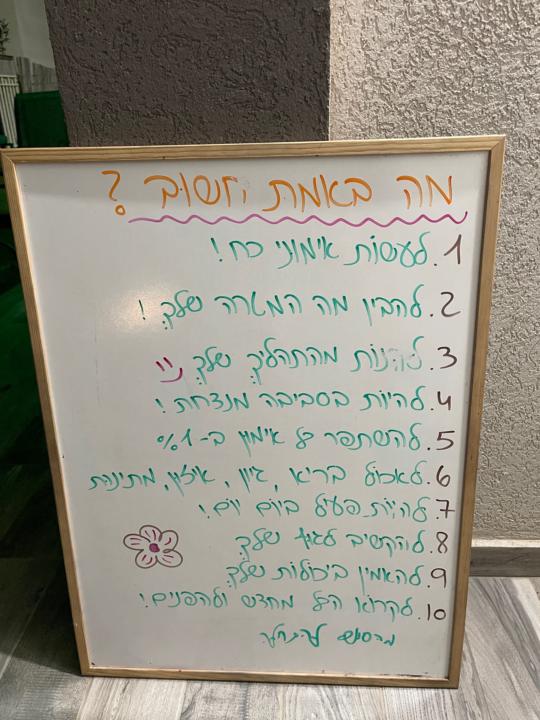 מה באמת חשוב ?
1. לעשות אימוני כח !
2. להבין מה המטרה שלך !
3. להנות מהתהליך שלך
4. להיות בסביבה מנצחת !
5. להשתפר כל אימון ב-1%
6. לאכול בריא, מתינות
7. להיות פעיל ביום יום !
8. להקשיב לגוף שלך
9. להאמין ביכולות שלך
10. לקרוא הכל מחדש ולהפנים !